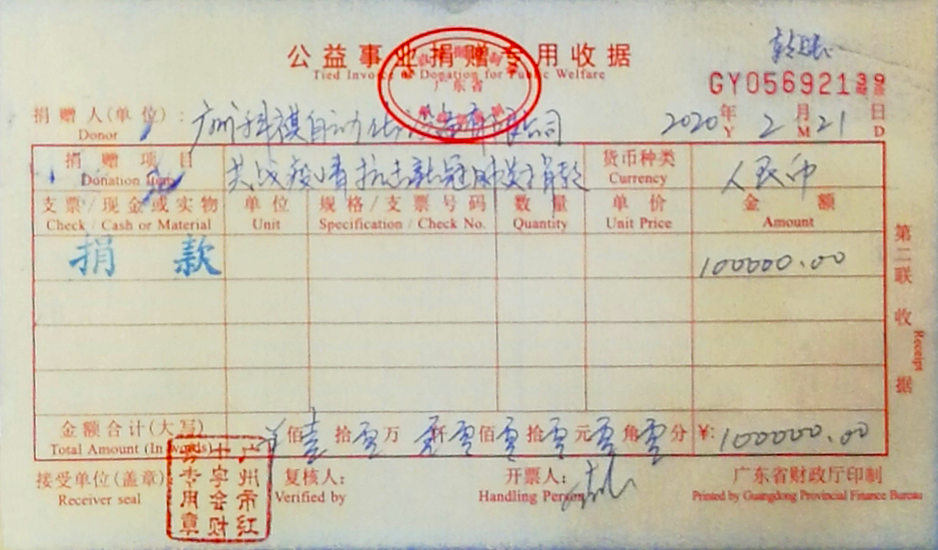 转账
公益事业捐赠专用收据
Tied Invoice of Donation for Public Welfare
广东省
GY05692139
捐赠人(单位): 广州科祺自动化设备有限公司 2020年 2月 21日
Donor Y M D
捐赠项目 共战疫情抗击新冠肺炎捐款 货币种类 人民币
Donation item Currency
支票/现金或实物 单位 规格/支票号码 数量 单价 金额
Check / Cash or Material Unit Specification / Check No. Quantity Unit Price Amount
捐款 100000.00
金额合计(大写) 佰壹拾零万零仟零佰零拾零元零角零分 ¥: 100000.00
Total Amount (In words)
接受单位(盖章) 复核人: 开票人: 广东省财政厅印制
Receiver seal Verified by Handling Person Printed by Guangdong Provincial Finance Bureau
广州市红
十字会财
务专用章
第二联 收据
Receipt